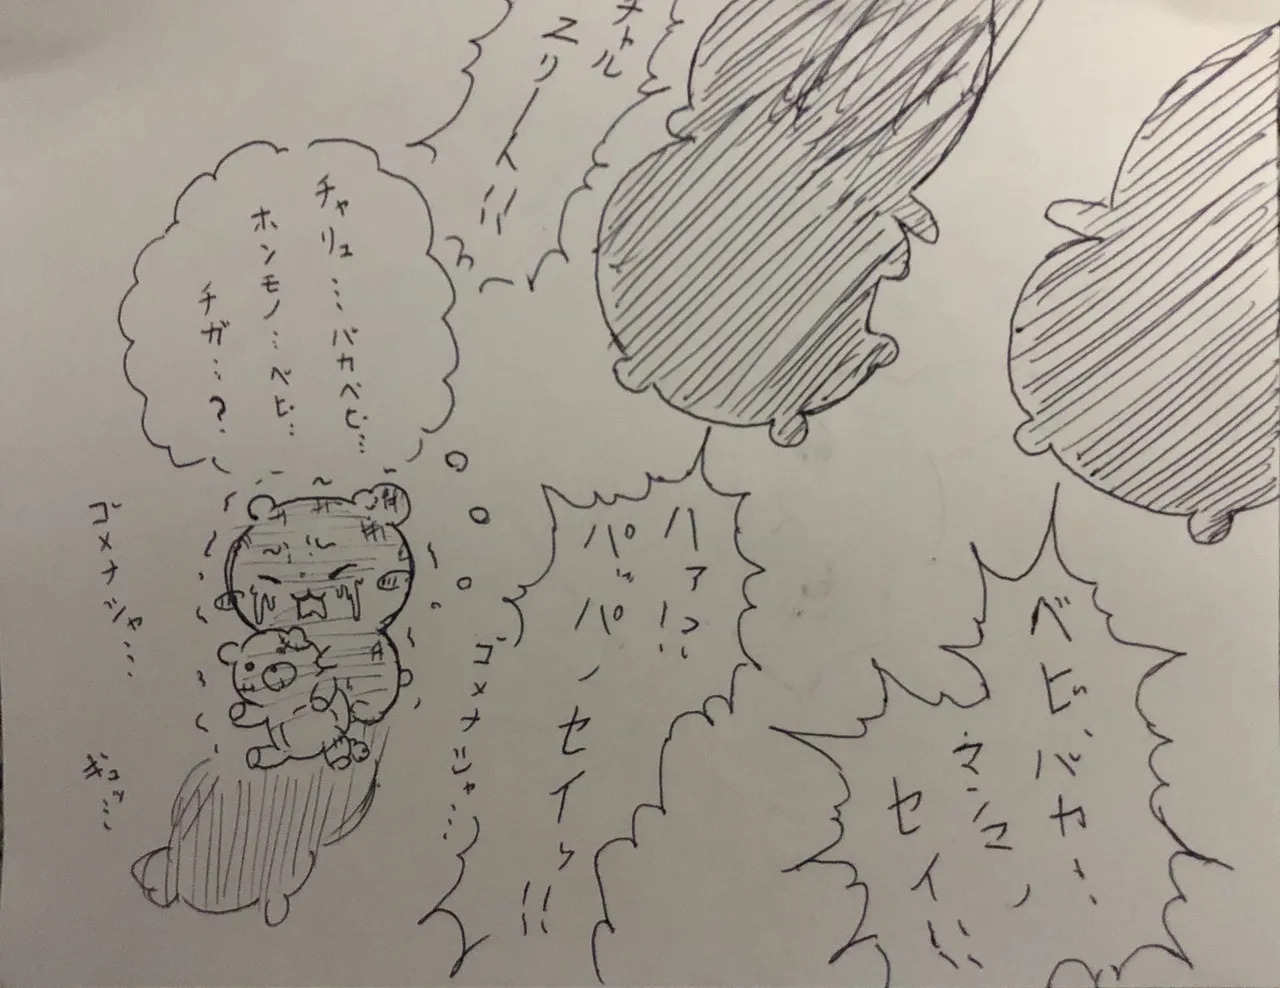 ベビバカ、
マンマノ
セイ!!
ハァ!?
パッパノセイッ!!
ゴメナシャ…
チャリュ…バカベビ…
ホンモノ…ベビ…
チガ…?
ゴメナシャ…
ギュッ…